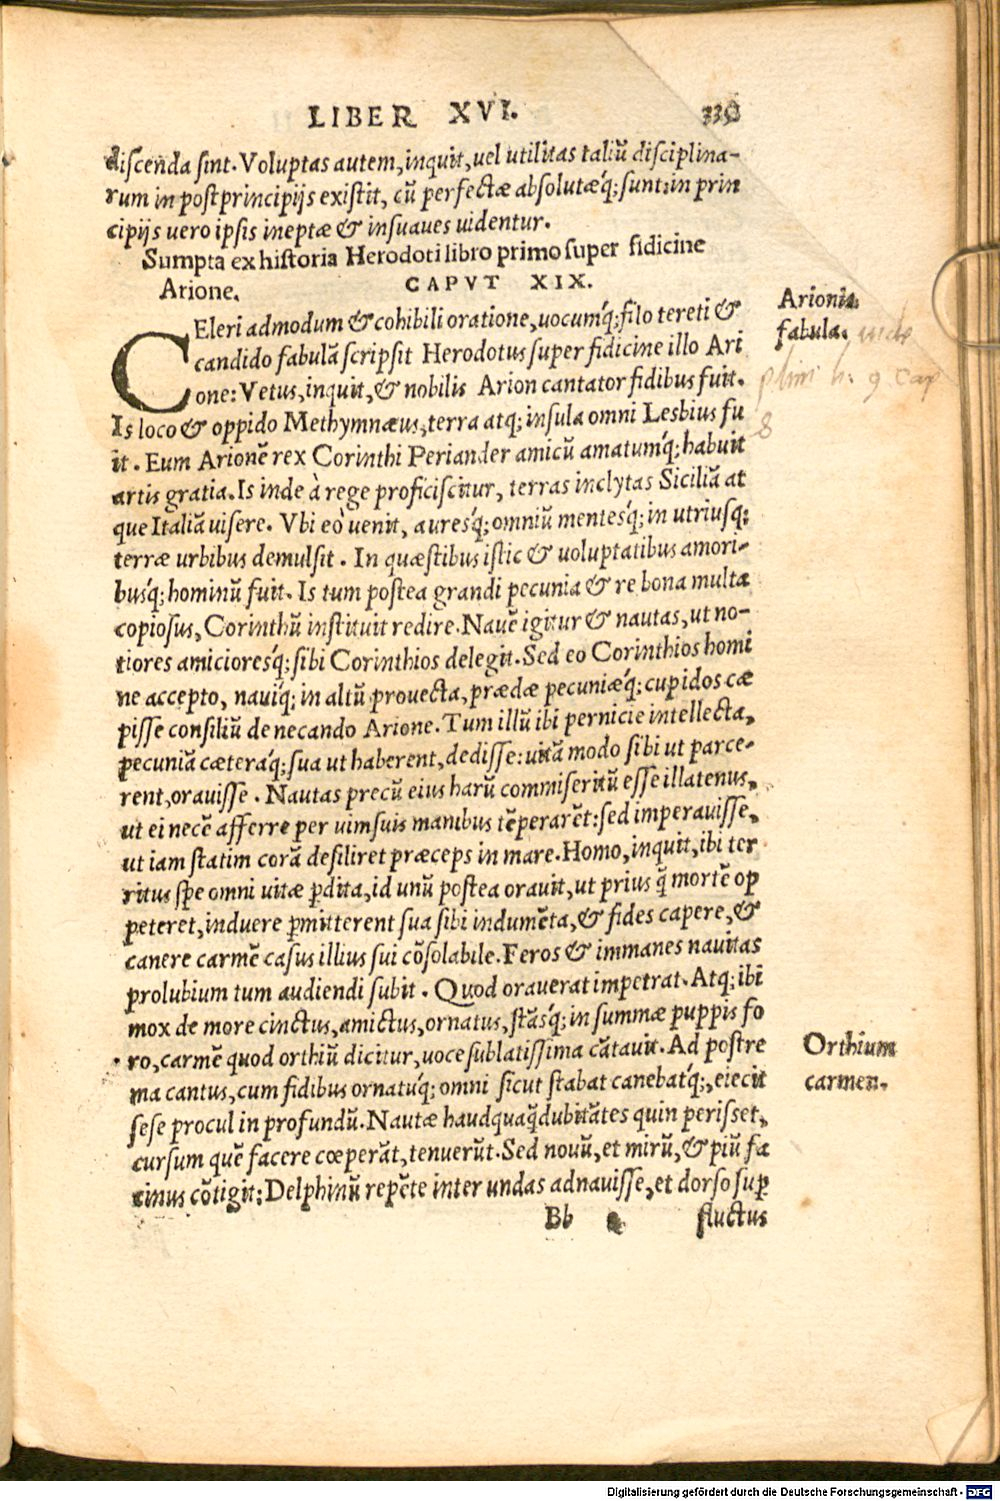 LIBER XVI.
discenda sint. Voluptas autem, inquit, uel utilitas taliũ disciplina-
rum in postprincipijs existit, cũ perfectæ absolutæq́; sunt: in prin
cipijs uero ipsis ineptæ & insuaues uidentur.
Sumpta ex historia Herodoti libro primo super fidicine
Arione. CAPVT XIX.
CEleri admodum & cohibili oratione, uocumq́; filo tereti &
candido fabulã scripsit Herodotus super fidicine illo Ari
one: Vetus, inquit, & nobilis Arion cantator fidibus fuit.
Is loco & oppido Methymnæus, terra atq; insula omni Lesbius fu
it. Eum Arionẽ rex Corinthi Periander amicũ amatumq́; habuit
artis gratia. Is inde à rege proficiscitur, terras inclytas Siciliã at
que Italiã uisere. Vbi eò uenit, auresq́; omniũ mentesq́; in utriusq;
terræ urbibus demulsit. In quæstibus istic & uoluptatibus amori-
busq́; hominũ fuit. Is tum postea grandi pecunia & re bona multa
copiosus, Corinthũ instituit redire. Nauẽ igitur & nautas, ut no-
tiores amicioresq́; sibi Corinthios delegit. Sed eo Corinthios homi
ne accepto, nauiq́; in altũ prouecta, prædæ pecuniæq́; cupidos cæ
pisse consiliũ de necando Arione. Tum illũ ibi pernicie intellecta,
pecuniã cæteraq́; sua ut haberent, dedisse: uitã modo sibi ut parce-
rent, orauisse. Nautas precũ eius harũ commiseritũ esse illatenus,
ut ei necẽ afferre per uim suis manibus tẽperarẽt: sed imperauisse,
ut iam statim corã desiliret præceps in mare. Homo, inquit, ibi ter
ritus spe omni uitæ p̱dita, id unũ postea orauit, ut prius q̃ mortẽ op
peteret, induere p̱mitterent sua sibi indumẽta, & fides capere, &
canere carmẽ casus illius sui cõsolabile. Feros & immanes nauitas
prolubium tum audiendi subit. Quod orauerat impetrat. Atq; ibi
mox de more cinctus, amictus, ornatus, stãsq́; in summæ puppis fo
ro, carmẽ quod orthiũ dicitur, uoce sublatissima cãtauit. Ad postre
ma cantus, cum fidibus ornatuq́; omni sicut stabat canebatq́;, eiecit
sese procul in profundũ. Nautæ haudquaq̃ dubitãtes quin perisset,
cursum quẽ facere cœperãt, tenuerũt. Sed nouũ, et mirũ, & piũ fa
cinus cõtigit: Delphinũ repẽte inter undas adnauisse, et dorso sup̱
Bb
fluctus
Arionis
fabula.
uide
plini h: 9 Cap
8
Orthium
carmen.
Digitalisierung gefördert durch die Deutsche Forschungsgemeinschaft - DFG